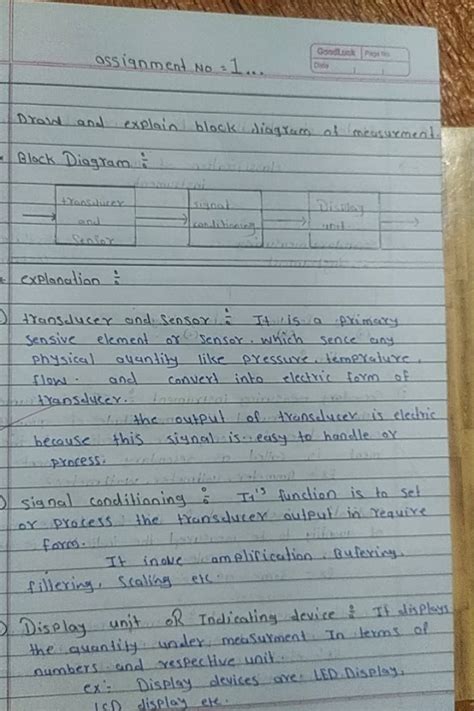 assignment No = 1...
GoodLuck Page No.
Date
Draw and explain block diagram of measurment.
Block Diagram :
transducer and Sensor
signal conditioning
Display unit
explanation :
transducer and Sensor : It is a primary
sensive element or sensor. which sence any
physical quantity like pressure, temprature,
flow. and convert into electric form of
transducer.
the output of transducer is electric
because this signal is easy to handle or
process.
signal conditioning : It's function is to set
or process the transducer output in require
form.
It inove amplification, Bufering,
fillering, Scaling etc
Display unit OR Indicating device : It displays
the quantity under measurment In terms of
numbers and respective unit.
ex:- Display devices are LED Display,
LCD display etc.